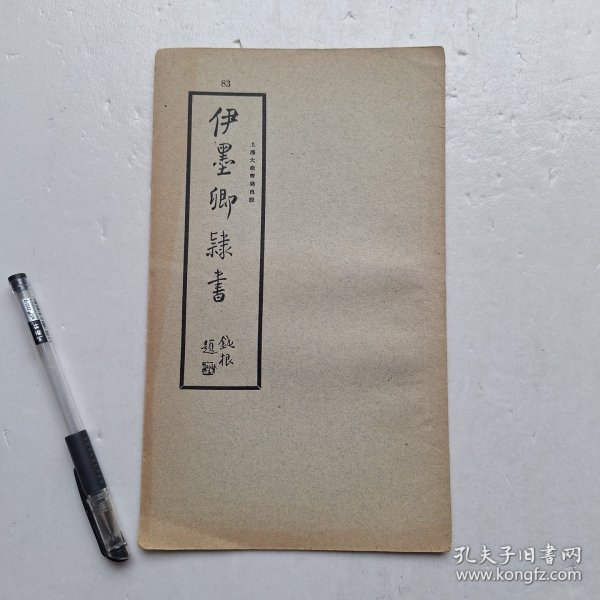 83
伊墨卿隸書
上海大眾書局出版
鐵根
題
孔夫子旧书网
www.kongfz.com